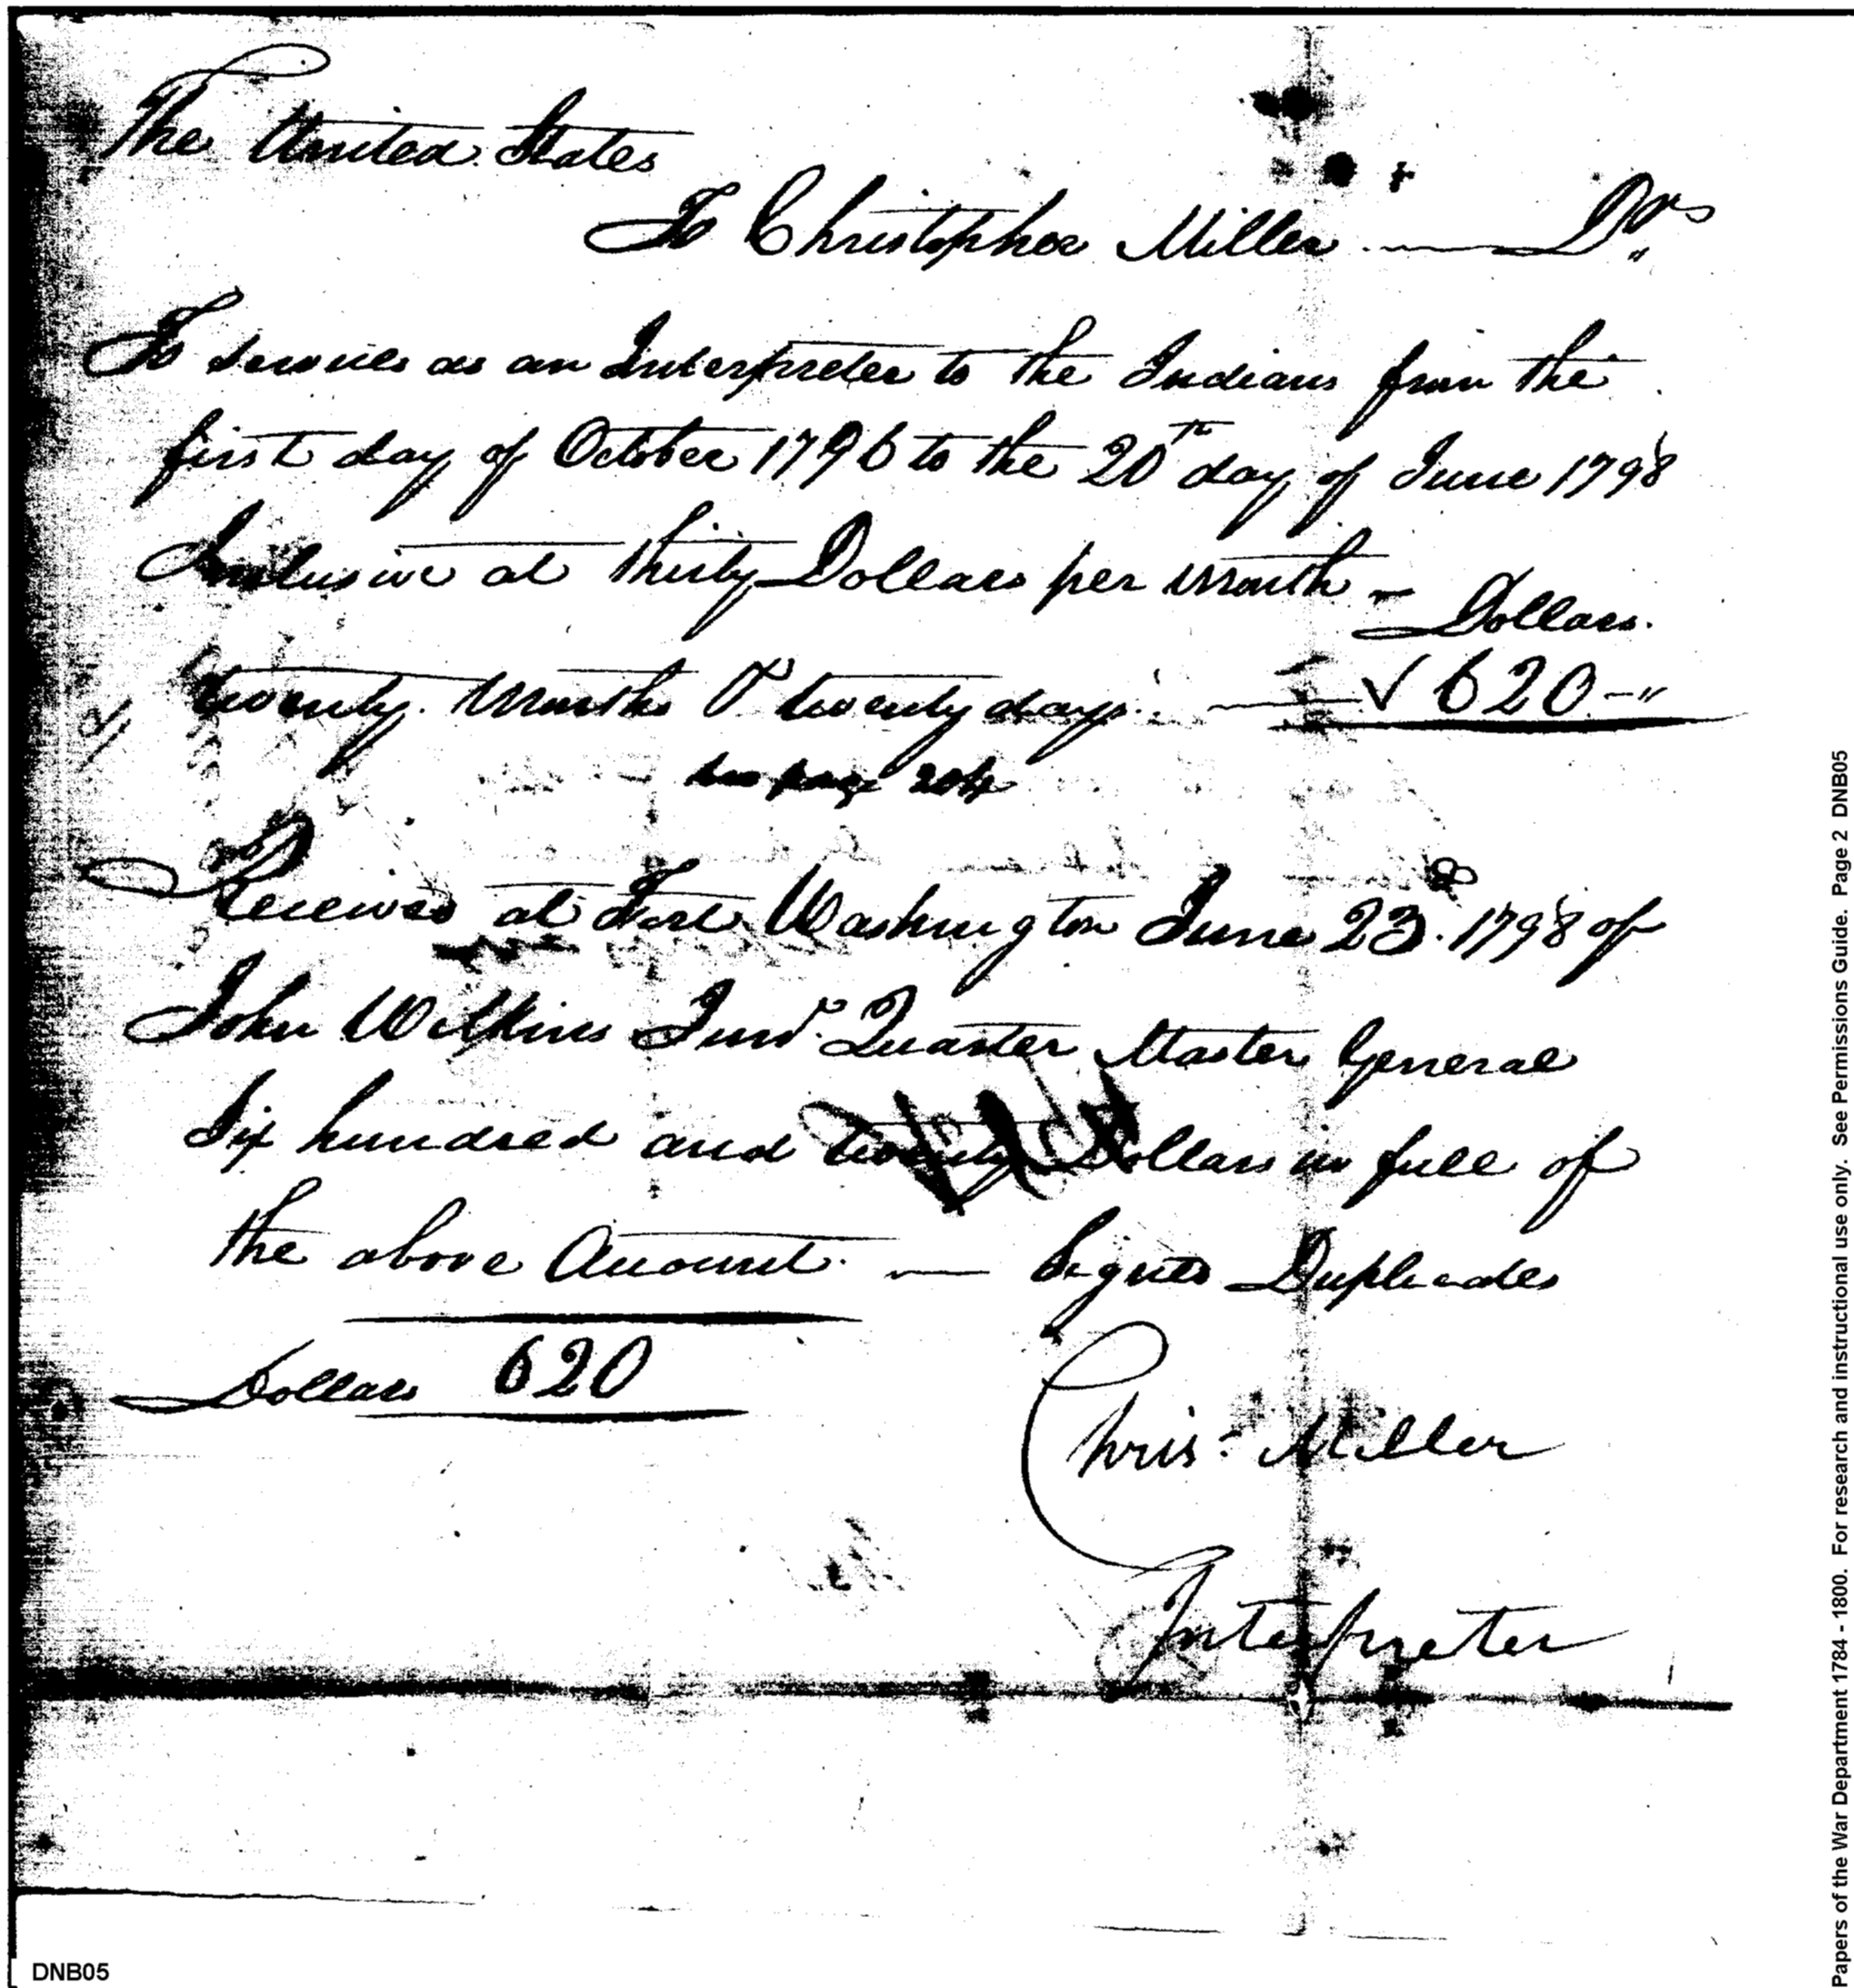 The United States
To Christopher Miller — Drs
To services as an Interpreter to the Indians from the
first day of October 1796 to the 20th day of June 1798
Inclusive at thirty Dollars per month —
Dollars.
twenty Months & twenty days. — √ 620 — "
see page 204
Received at Fort Washington June 23. 1798 of
John Wilkins Junr. Quarter Master General
Six hundred and twenty Dollars in full of
the above Account. — Signed Duplicates
Dollars 620
Chris: Miller
Interpreter
DNB05
Papers of the War Department 1784 - 1800. For research and instructional use only. See Permissions Guide. Page 2 DNB05